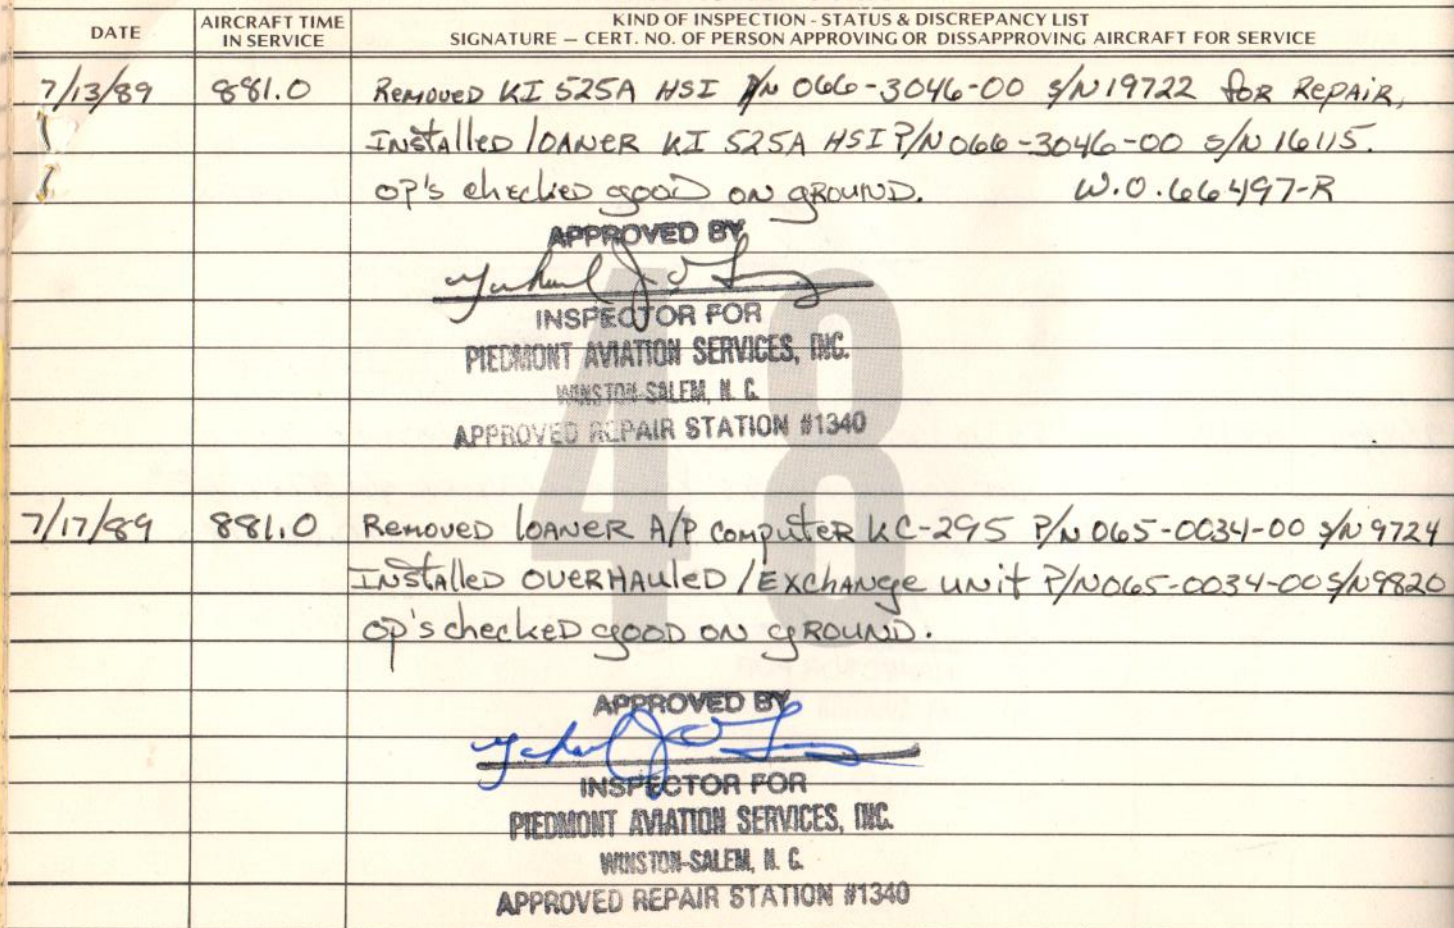 DATE
AIRCRAFT TIME
IN SERVICE
KIND OF INSPECTION - STATUS & DISCREPANCY LIST
SIGNATURE — CERT. NO. OF PERSON APPROVING OR DISSAPPROVING AIRCRAFT FOR SERVICE
7/13/89 881.0 Removed KI 525A HSI P/N 066-3046-00 S/N 19722 for Repair,
Installed loaner KI 525A HSI P/N 066-3046-00 S/N 16115.
op's checked good on ground. W.O. 66497-R
APPROVED BY
INSPECTOR FOR
PIEDMONT AVIATION SERVICES, INC.
WINSTON-SALEM, N. C.
APPROVED REPAIR STATION #1340
48
7/17/89 881.0 Removed loaner A/P computer KC-295 P/N 065-0034-00 S/N 9724
Installed overhauled/Exchange unit P/N 065-0034-00 S/N 9820
op's checked good on ground.
APPROVED BY
INSPECTOR FOR
PIEDMONT AVIATION SERVICES, INC.
WINSTON-SALEM, N. C.
APPROVED REPAIR STATION #1340